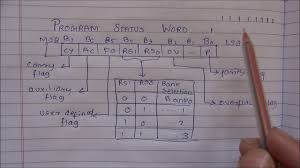 PROGRAM STATUS WORD
MSB B7 B6 B5 B4 B3 B2 B1 B0 LSB
CY AC F0 RS1 RS0 OV – P
Carry flag
auxiliary flag
user definable flag
parity flag
overflow flag
RS1 RS0 Bank Selection
0 0 Bank 0
0 1 1
1 0 2
1 1 3